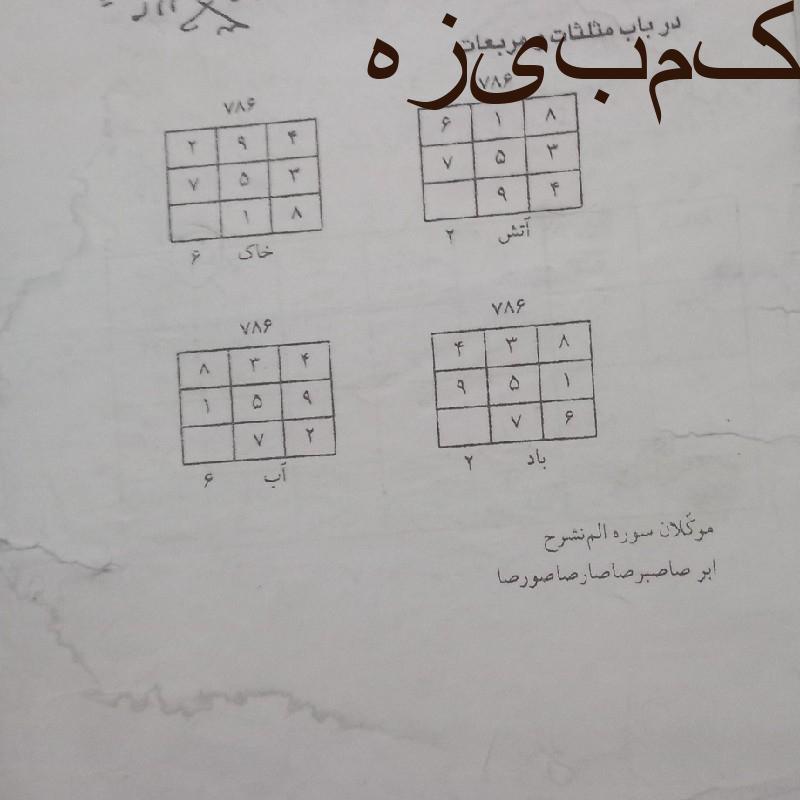 در باب مثلثات و مربعات
کمبیزه
۷۸۶
۶ ۱ ۸
۷ ۵ ۳
۹ ۴
۲ آتش
۷۸۶
۲ ۹ ۴
۷ ۵ ۳
۱ ۸
۶ خاک
۷۸۶
۴ ۳ ۸
۹ ۵ ۱
۷ ۶
۲ باد
۷۸۶
۸ ۳ ۴
۱ ۵ ۹
۷ ۲
۶ آب
موکّلان سوره الم‌نشرح
ابر صاصبرصاصارصاصورصا